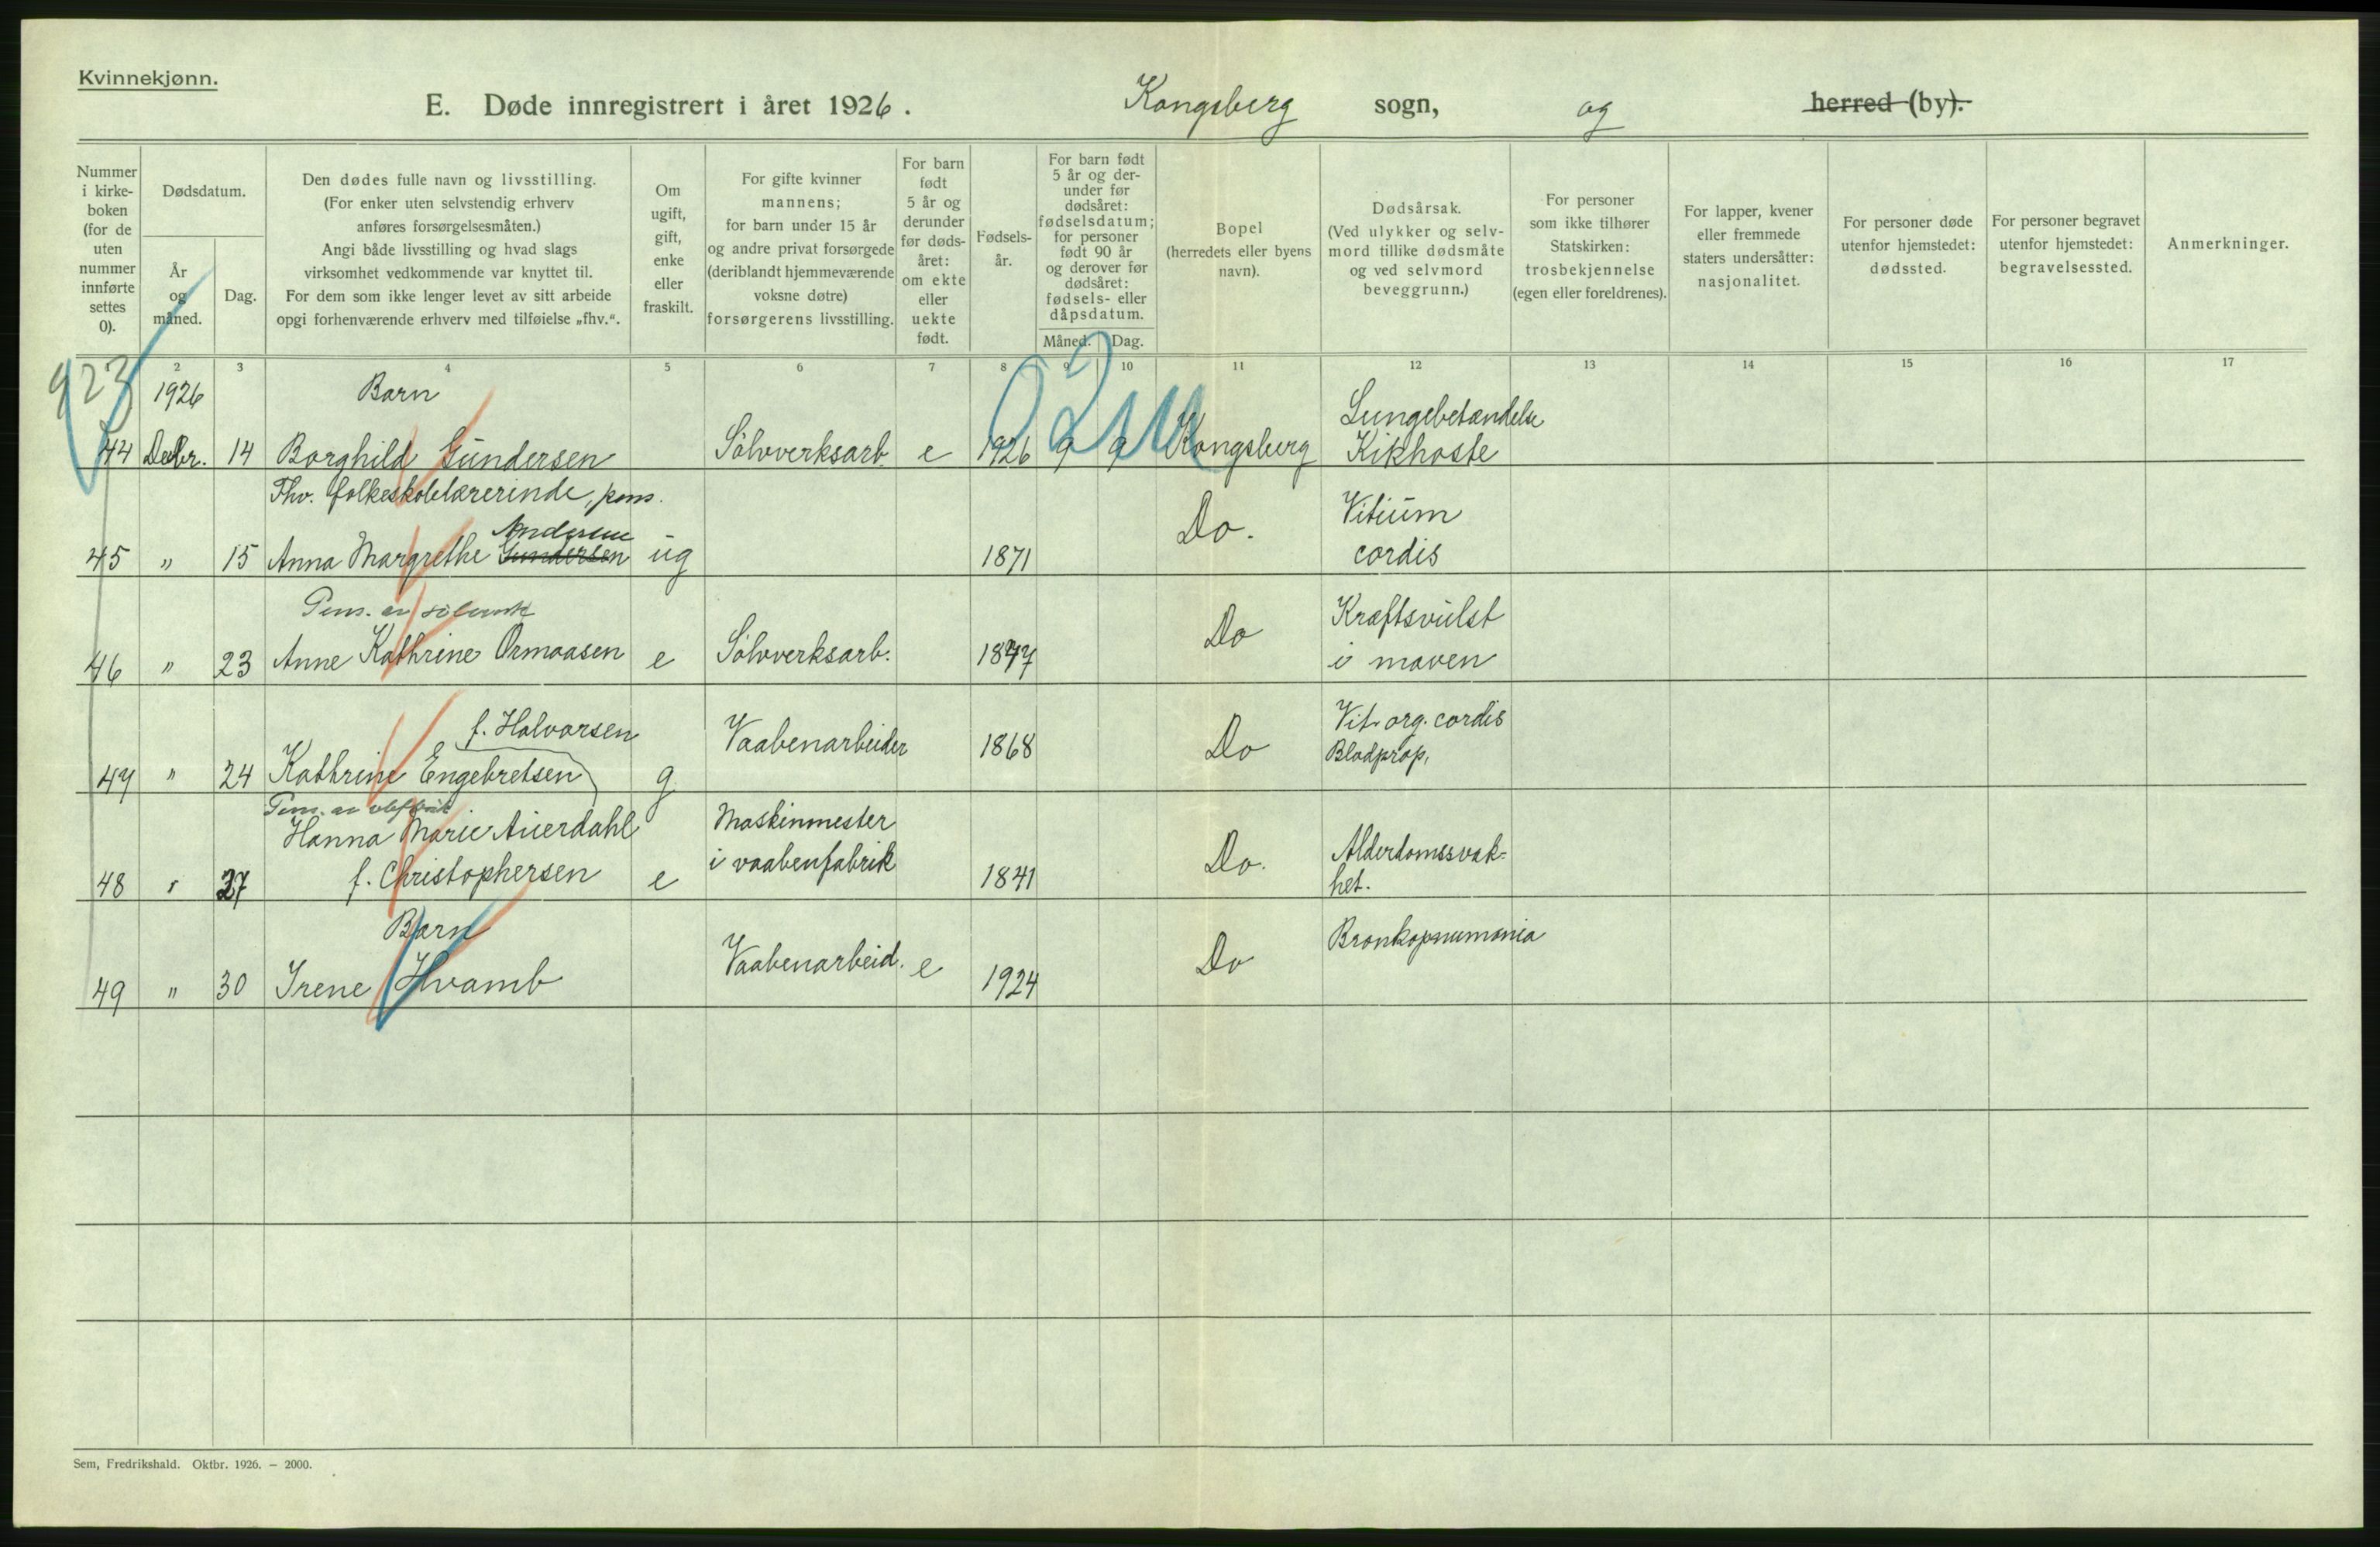 Kvinnekjønn.
E. Døde innregistrert i året 1926. Kongsberg sogn, og herred (by).
Nummer i kirkeboken (for de uten nummer innførte settes 0).
Dødsdatum.
År og måned.
Dag.
Den dødes fulle navn og livsstilling.
(For enker uten selvstendig erhverv
anføres forsørgelsesmåten.)
Angi både livsstilling og hvad slags
virksomhet vedkommende var knyttet til.
For dem som ikke lenger levet av sitt arbeide
opgi forhenværende erhverv med tilføielse „fhv.“.
Om
ugift,
gift,
enke
eller
fraskilt.
For gifte kvinner
mannens;
for barn under 15 år
og andre privat forsørgede
(deriblandt hjemmeværende
voksne døtre)
forsørgerens livsstilling.
For barn
født
5 år og
derunder
før døds-
året:
om ekte
eller
uekte
født.
Fødsels-
år.
For barn født
5 år og der-
under før
dødsåret:
fødselsdatum;
for personer
født 90 år
og derover før
dødsåret:
fødsels- eller
dåpsdatum.
Måned. Dag.
Bopel
(herredets eller byens
navn).
Dødsårsak.
(Ved ulykker og selv-
mord tillike dødsmåte
og ved selvmord
beveggrunn.)
For personer
som ikke tilhører
Statskirken:
trosbekjennelse
(egen eller foreldrenes).
For lapper, kvener
eller fremmede
staters undersåtter:
nasjonalitet.
For personer døde
utenfor hjemstedet:
dødssted.
For personer begravet
utenfor hjemstedet:
begravelsessted.
Anmerkninger.
2 3 4 5 6 7 8 9 10 11 12 13 14 15 16 17
923
1926 Barn Lungebetændelse
44 Decbr. 14 Borghild Gundersen Sølvverksarb. e 1926 9 9 Kongsberg Kikhoste
Fhv. folkeskolelærerinde, pens.
Andersen Do. Vitium
45 " 15 Anna Margrethe Gundersen ug 1871 cordis
Pens. av sølvverk Do Kræftsvulst
46 " 23 Anne Kathrine Ormaasen e Sølvverksarb. 1847 i maven
f. Halvorsen Vaabenarbeider 1868 Do Vit. org. cordis
Blodprop,
47 " 24 Kathrine Engebretsen g
Pens. av
Hanna Marie Auerdahl Maskinmester Do. Alderdomssvak-
48 " 27 f. Christophersen e i vaabenfabrik 1841 het.
Barn Bronkopnumonia
49 " 30 Irene Hvamb Vaabenarbeid. e 1924 Do
Sem, Fredrikshald. Oktbr. 1926. — 2000.